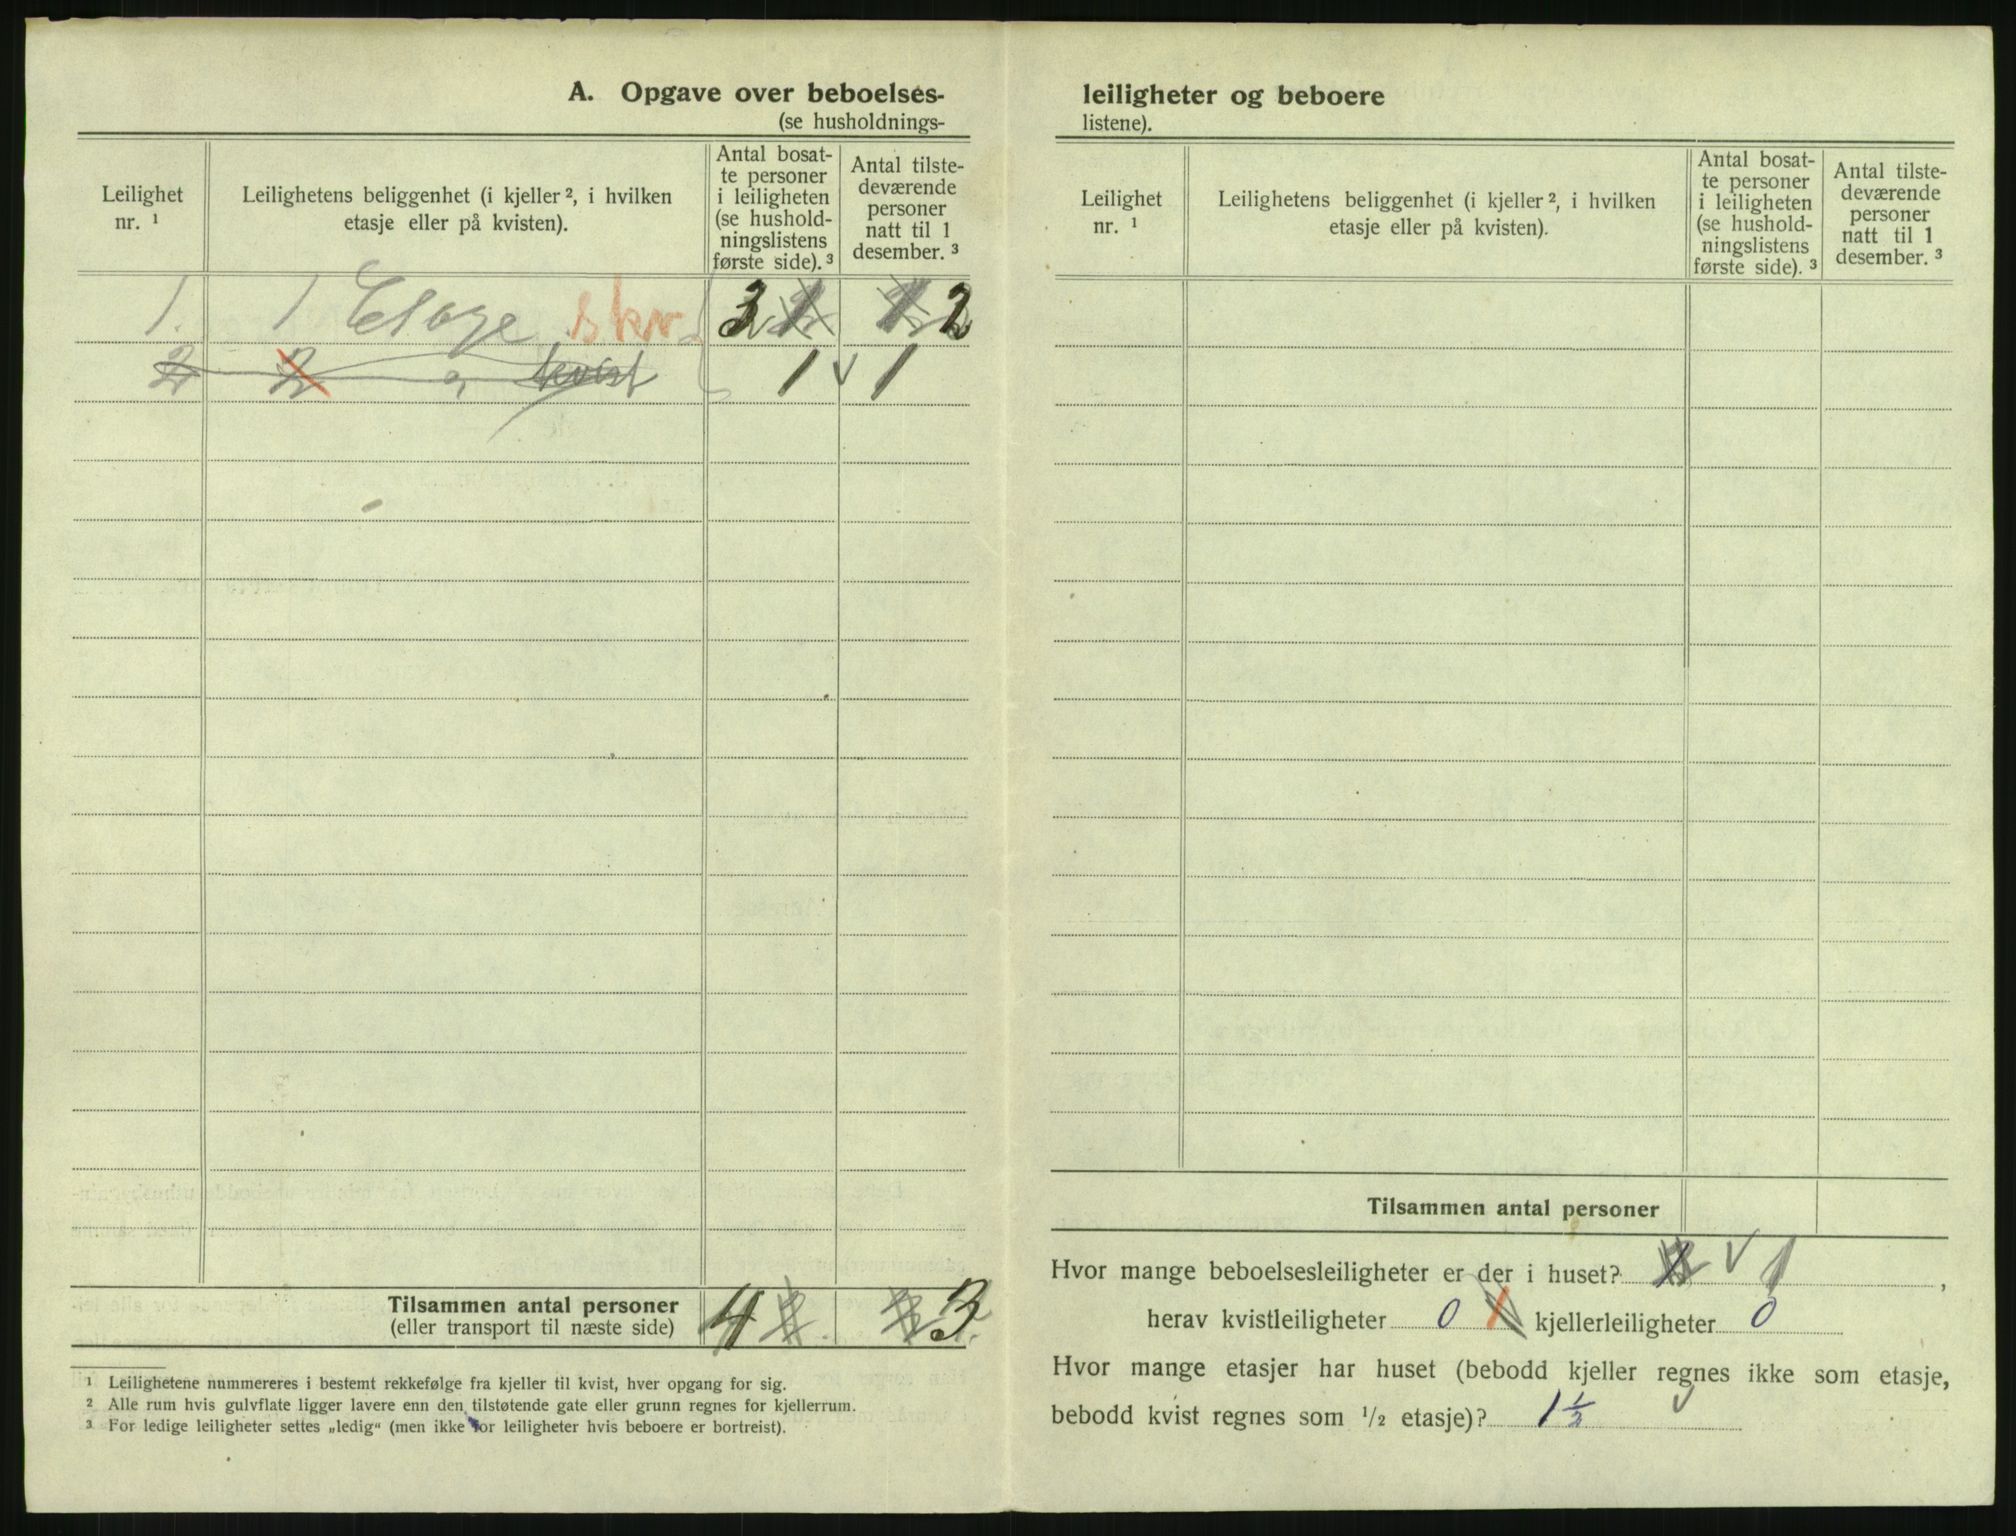 A. Opgave over beboelses-
(se husholdnings-
Leilighet
nr. ¹
Leilighetens beliggenhet (i kjeller ², i hvilken
etasje eller på kvisten).
Antal bosat-
te personer
i leiligheten
(se hushold-
ningslistens
første side). ³
Antal tilste-
deværende
personer
natt til 1
desember. ³
1. 1 Etage skv 3 1 1 2
2 2 " kvist 1 v 1
Tilsammen antal personer 4 3
(eller transport til næste side)
¹ Leilighetene nummereres i bestemt rekkefølge fra kjeller til kvist, hver opgang for sig.
² Alle rum hvis gulvflate ligger lavere enn den tilstøtende gate eller grunn regnes for kjellerrum.
³ For ledige leiligheter settes „ledig“ (men ikke for leiligheter hvis beboere er bortreist).
leiligheter og beboere
listene).
Leilighet
nr. ¹
Leilighetens beliggenhet (i kjeller ², i hvilken
etasje eller på kvisten).
Antal bosat-
te personer
i leiligheten
(se hushold-
ningslistens
første side). ³
Antal tilste-
deværende
personer
natt til 1
desember. ³
Tilsammen antal personer
Hvor mange beboelsesleiligheter er der i huset? 2 v 1,
herav kvistleiligheter 0 1 kjellerleiligheter 0
Hvor mange etasjer har huset (bebodd kjeller regnes ikke som etasje,
bebodd kvist regnes som ¹/₂ etasje)? 1 ½ v